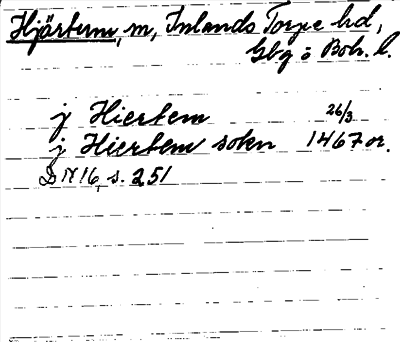 Hjärtum, m, Inlands Torpe hd,
Gbg o Boh. l.
j Hiertem 26/3
j Hiertem sokn 1467 or.
DN 16, s. 251